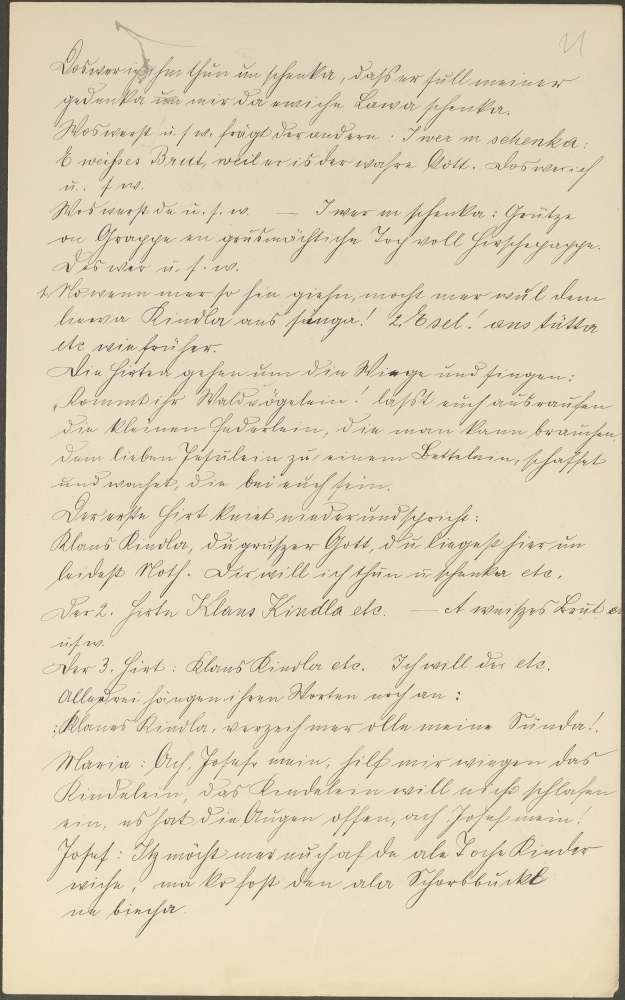 21
Doswer ich ihm thun un schenka, dass er sull meiner
gedenka un mir da ewiche Lawa schenka.
Wos werst u. s w. frägt der andern: I wer m schenka:
E weisses Brut, weil er is der wahre Gott. Dos wer ich
u. s w.
Wos werst du u. s. w. — I wer m schenka: Grütze
on Grappe en grusmächtiche Top voll Hirschepappe.
Dos wer u. s. w.
No wenn mer so hin giehn, mocht mer wul dem
liewa Kindla ans singa! 2. Esel! ans tütta
etc wie früher.
Die Hirten gehen um die Wiege und singen:
"Kommt ihr Waldvögelein! lasst euch ausraufen
die kleinen Federlein, die man kann brauchen,
dem lieben Jesulein zu einem Bettelein, schaffet
und wachet, die bei euch sein.
Der erste Hirt kniet nieder und spricht:
Klans Kindla, du gruszer Gott, du liegest hier un
leidest Noth. Dir will ich thun u schenka etc.
Der 2. Hirte Klans Kindla etc. — A weiszes Brut
u s w.
Der 3. Hirt: Klans Kindla etc. Ich will dir etc.
Alle drei hängen ihren Worten noch an:
:Klanes Kindla, verzech mer olla meine Sünda!.
Maria: Ach, Josefe mein, hilf mir wiegen das
Kindelein, das Kindelein will nicht schlafen
ein, es hat die Augen offen, ach Josef mein!
Josef: Itz möcht mer nuch af da ale Toche Kinder
wiche, ma ko fost den ala
ne biecha.